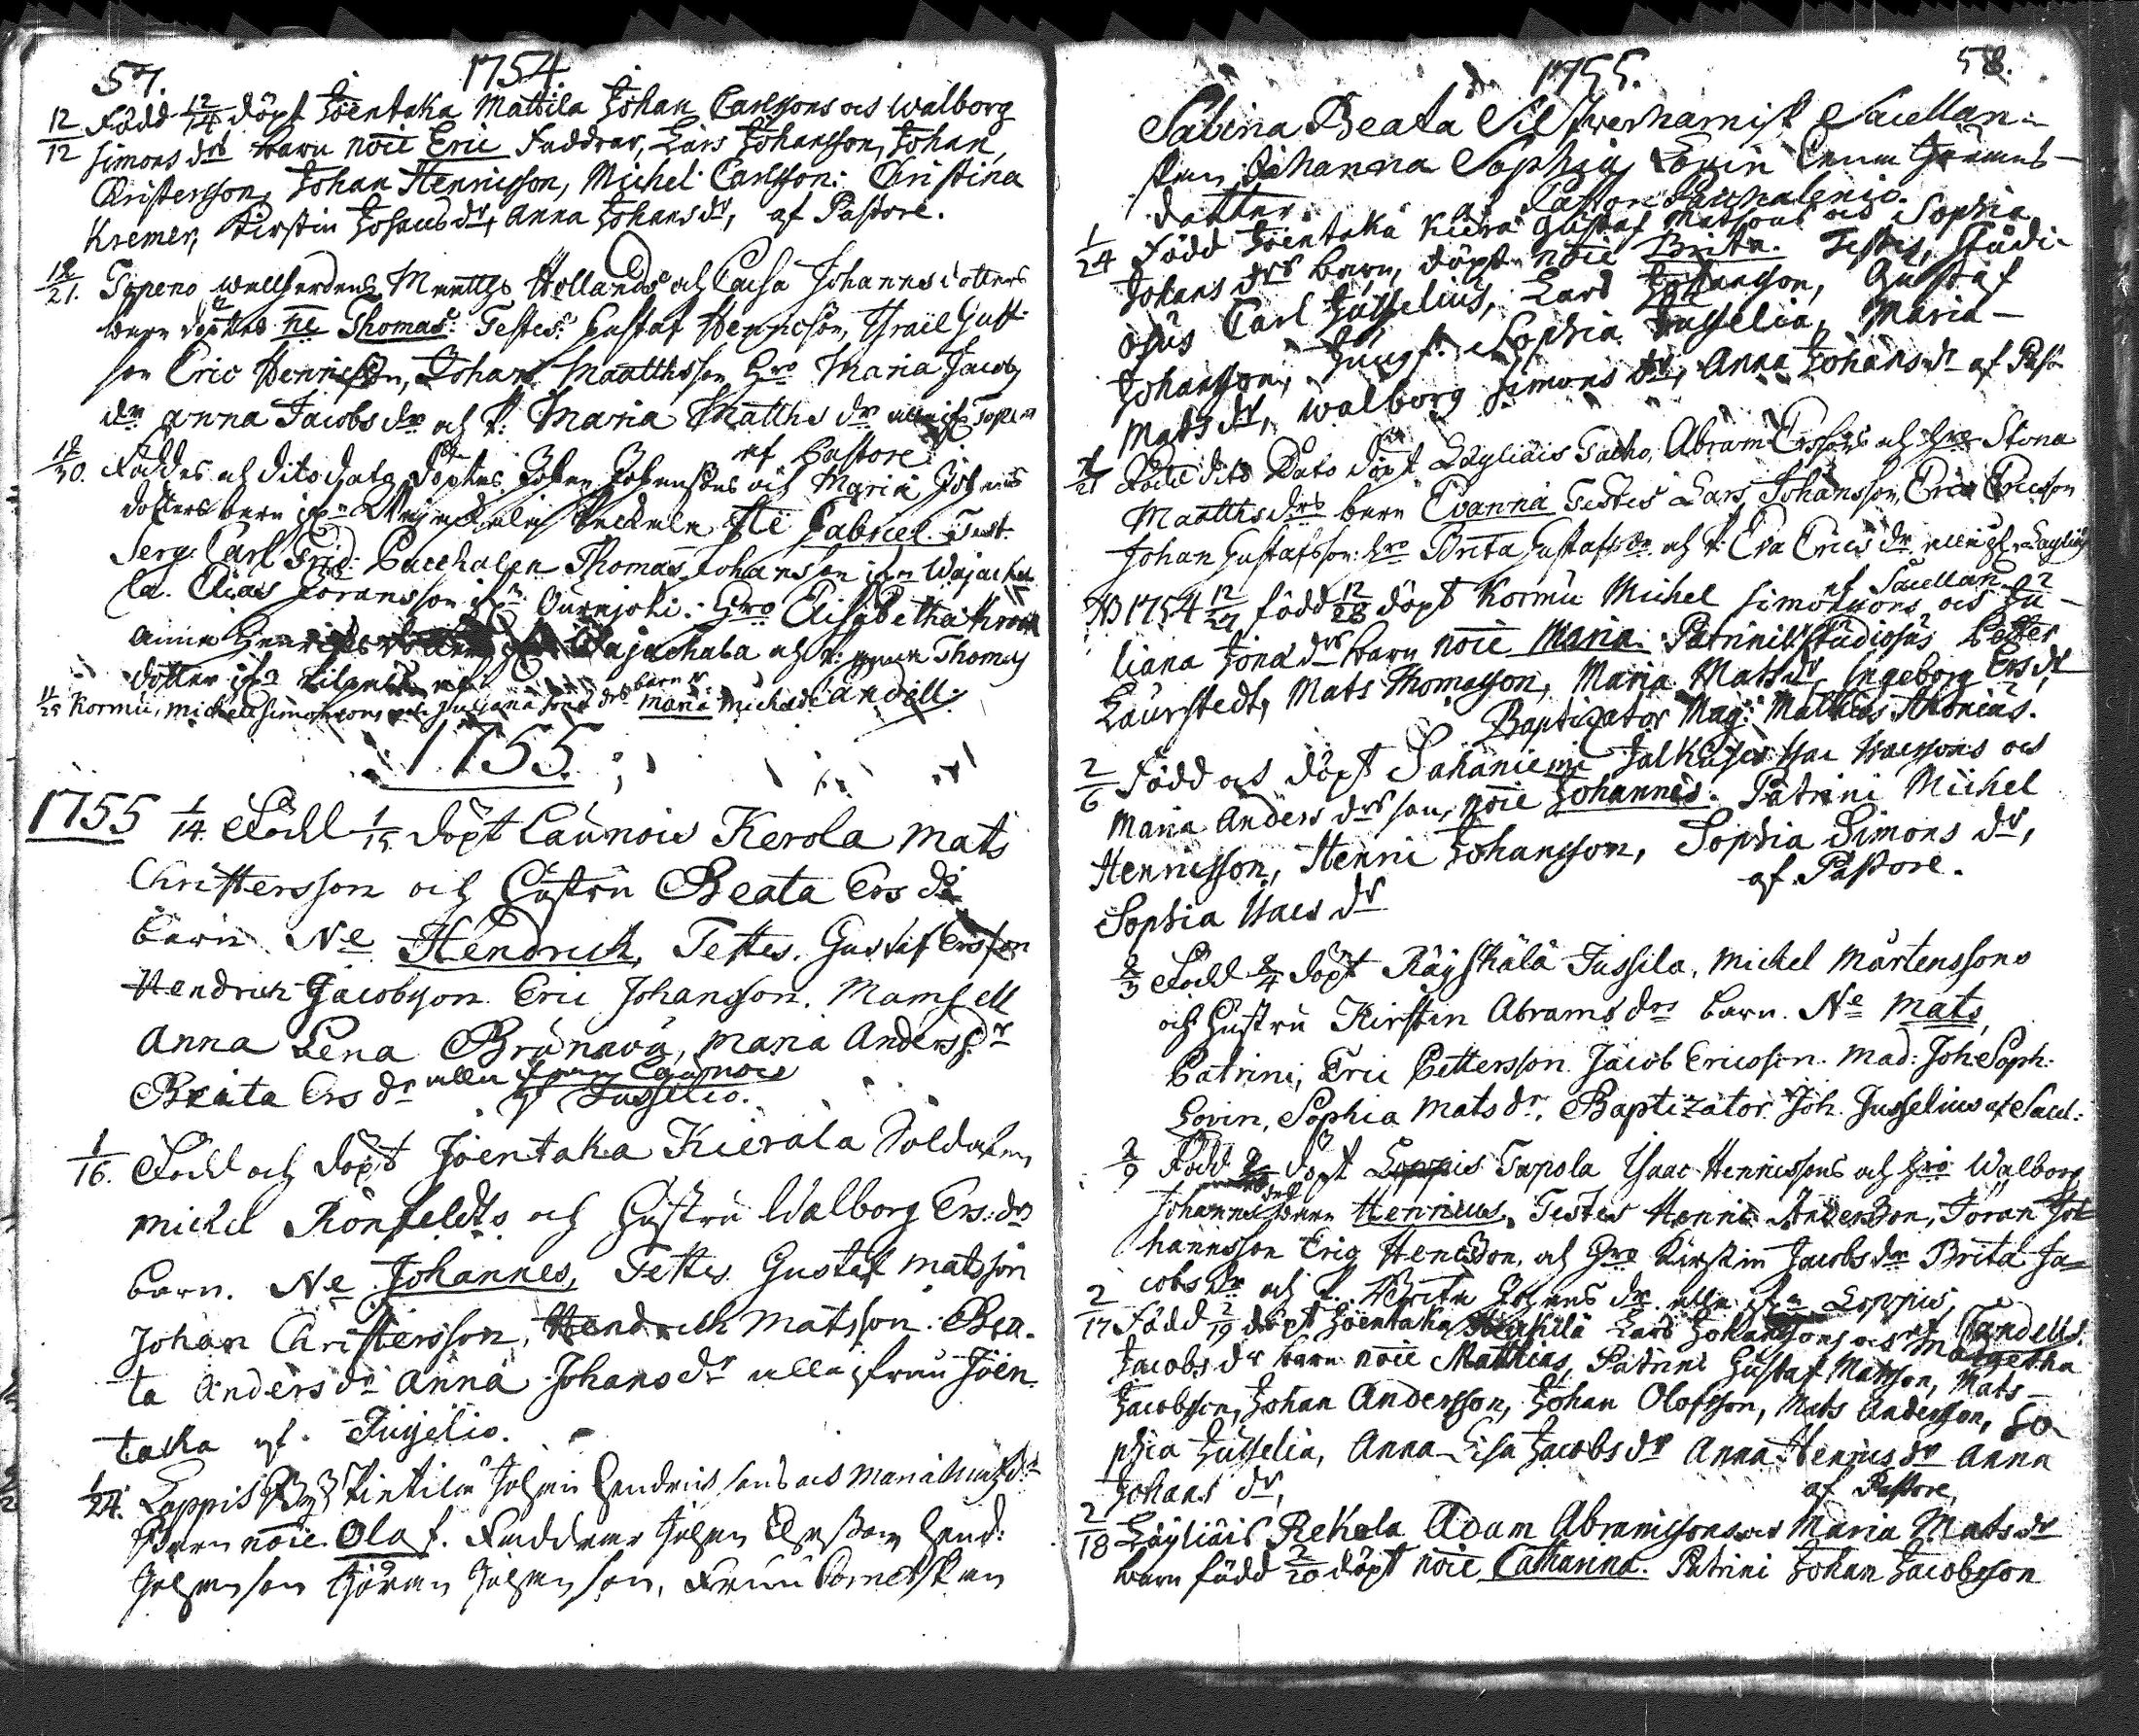 57. 1754.
12/12 Född 12/14 döpt Jöentaka Mattila Johan Carlssons ocs Walborg
Simons drs barn noie Eric Faddrar, Lars Johansson, Johan
Christersson, Johan Henricsson, Michel Carlsson: Christina
Kremer, Kirstin Johans dr, Anna Johans dr, af Pastore.
12/21. Topeno Matths Hollands och Caisa Johannsdotters
barn döptes ne Thomas: Testes: Gustaf Henricson, Israel Gust
son Eric Henricson, Johan Maatthsson hro Maria Jacobs
dr Anna Jacobs dr och P: Maria Matths dr Topeno
af Pastore
12/30. Föddes och dito dato döptes Johan Johansons och Maria Johans
dotters barn ne Gabriel. Test.
Serg: Carl Frid: Pacchalen Thomas Johansson ifrn Wäjackä
la. Elias Göransson ifrn Ourajoki. Hro Elisabetha
Anna Wajackala och P: Thomas
dotter ifrn
12/25 Kormu, Michel Simonssons Juliana Jona drs barn Maria Michael Candell
1755.
1755 1/14. Född 1/15 döpt Caunois Kerola Mats
Christersson och Hustru Beata Ers dr
barn Ne Hendrich, Testes. Gustaf Ersson
Hendrich Jacobsson Eric Johansson. Mamsell
Anna Lena Brunovia, Maria Anders dr
Beata Ers dr alla Caunois
af Jusselio.
1/16. Född och döpt Jöentaka Kierala Soldaten
Michel Rönfeldts och Hustru Walborg Ers: drs
barn. Ne Johannes, Testes Gustaf Matsson
Johan Christersson, Hendrich Matsson. Bea-
ta Anders dr Anna Johans dr alla ifrån Jöen-
taka af. Jusselio.
1/24. Loppis Kintila Johan Hendricsons ocs Maria Mats drs
Barn noie Olof. Faddrar Johan Ersson Hend:
Johansson Göran Johansson, Fruu Cornetskan
1755. 58.
Sabina Beata Silfwerharnisk Sacellan-
skan Johanna Sophia Lovin
dotter. af Pastore
1/24 Född Jöentaka Kiärä Gustaf Matssons ocs Sophia
Johans drs barn, döpt noie Brita. Testes, Studi
osus Carl Jusselius, Lars Johansson, Gustaf
Johansson, Jungf. Sophia Jusselia, Maria
Mats dr, Walborg Simons dr, Anna Johans dr af Past
Född dito Dato döpt Läyliäis Abram Erssons och hro Stina
Maatths drs barn Evanna Testes Lars Johansson, Eric Ericson
Johan Gustafsson: hro Brita Gustafs dr och P: Eva Erics dr alla
af Sacellan
NB 1754 12/27 född 12/28 döpt Kormu Michel Simonssons ocs Ju-
liana Jona drs barn noie Maria. Patrini Studiosus Petter
Laurstedt, Mats Thomasson, Maria Mats dr, Ingeborg Ers dr
Baptizator Mag: Mathias
2/6 Född ocs döpt Sahaniemi Isac Isacssons ocs
Maria Anders drs son, noie Johannes. Patrini Michel
Henricsson, Henric Johansson, Sophia Simons dr,
Sophia Isacs dr af Pastore.
2/3 Född 2/4 döpt Räyskälä Jussila, Michel Mårtenssons
och Hustru Kirstin Abrams drs barn. Ne Mats,
Patrini, Eric Pettersson Jacob Ericsson. Mad: Joh: Soph:
Lovin, Sophia Mats dr. Baptizator Joh. Jusselius af Sacel:
2/9 Född döpt Loppis Tapola Isaac Henricssons och hro Walborg
Johannes drs barn Henricus, Testes Henric Andersson, Jöran Jo-
hannsson Eric Hencsson, och Hro Kirstin Jacobs dr Brita Ja=
cobs dr och P. Brita Johans dr alla ifrn Loppis,
af Candell
2/17 Född 2/19 döpt Jöentaka Lars Johanssons ocs Margetha
Jacobs drs barn noie Matthias, Patrini Gustaf Matsson, Mats
Jacobsson, Johan Andersson, Johan Olofsson, Mats Andersson, So
phia Jusselia, Anna Lisa Jacobs dr Anna Henrics dr Anna
Johans dr, af Pastore,
2/18 Läyliäis Rekola Adam Abramssons ocs Maria Mats drs
barn född 2/20 döpt noie Catharina. Patrini Johan Jacobsson